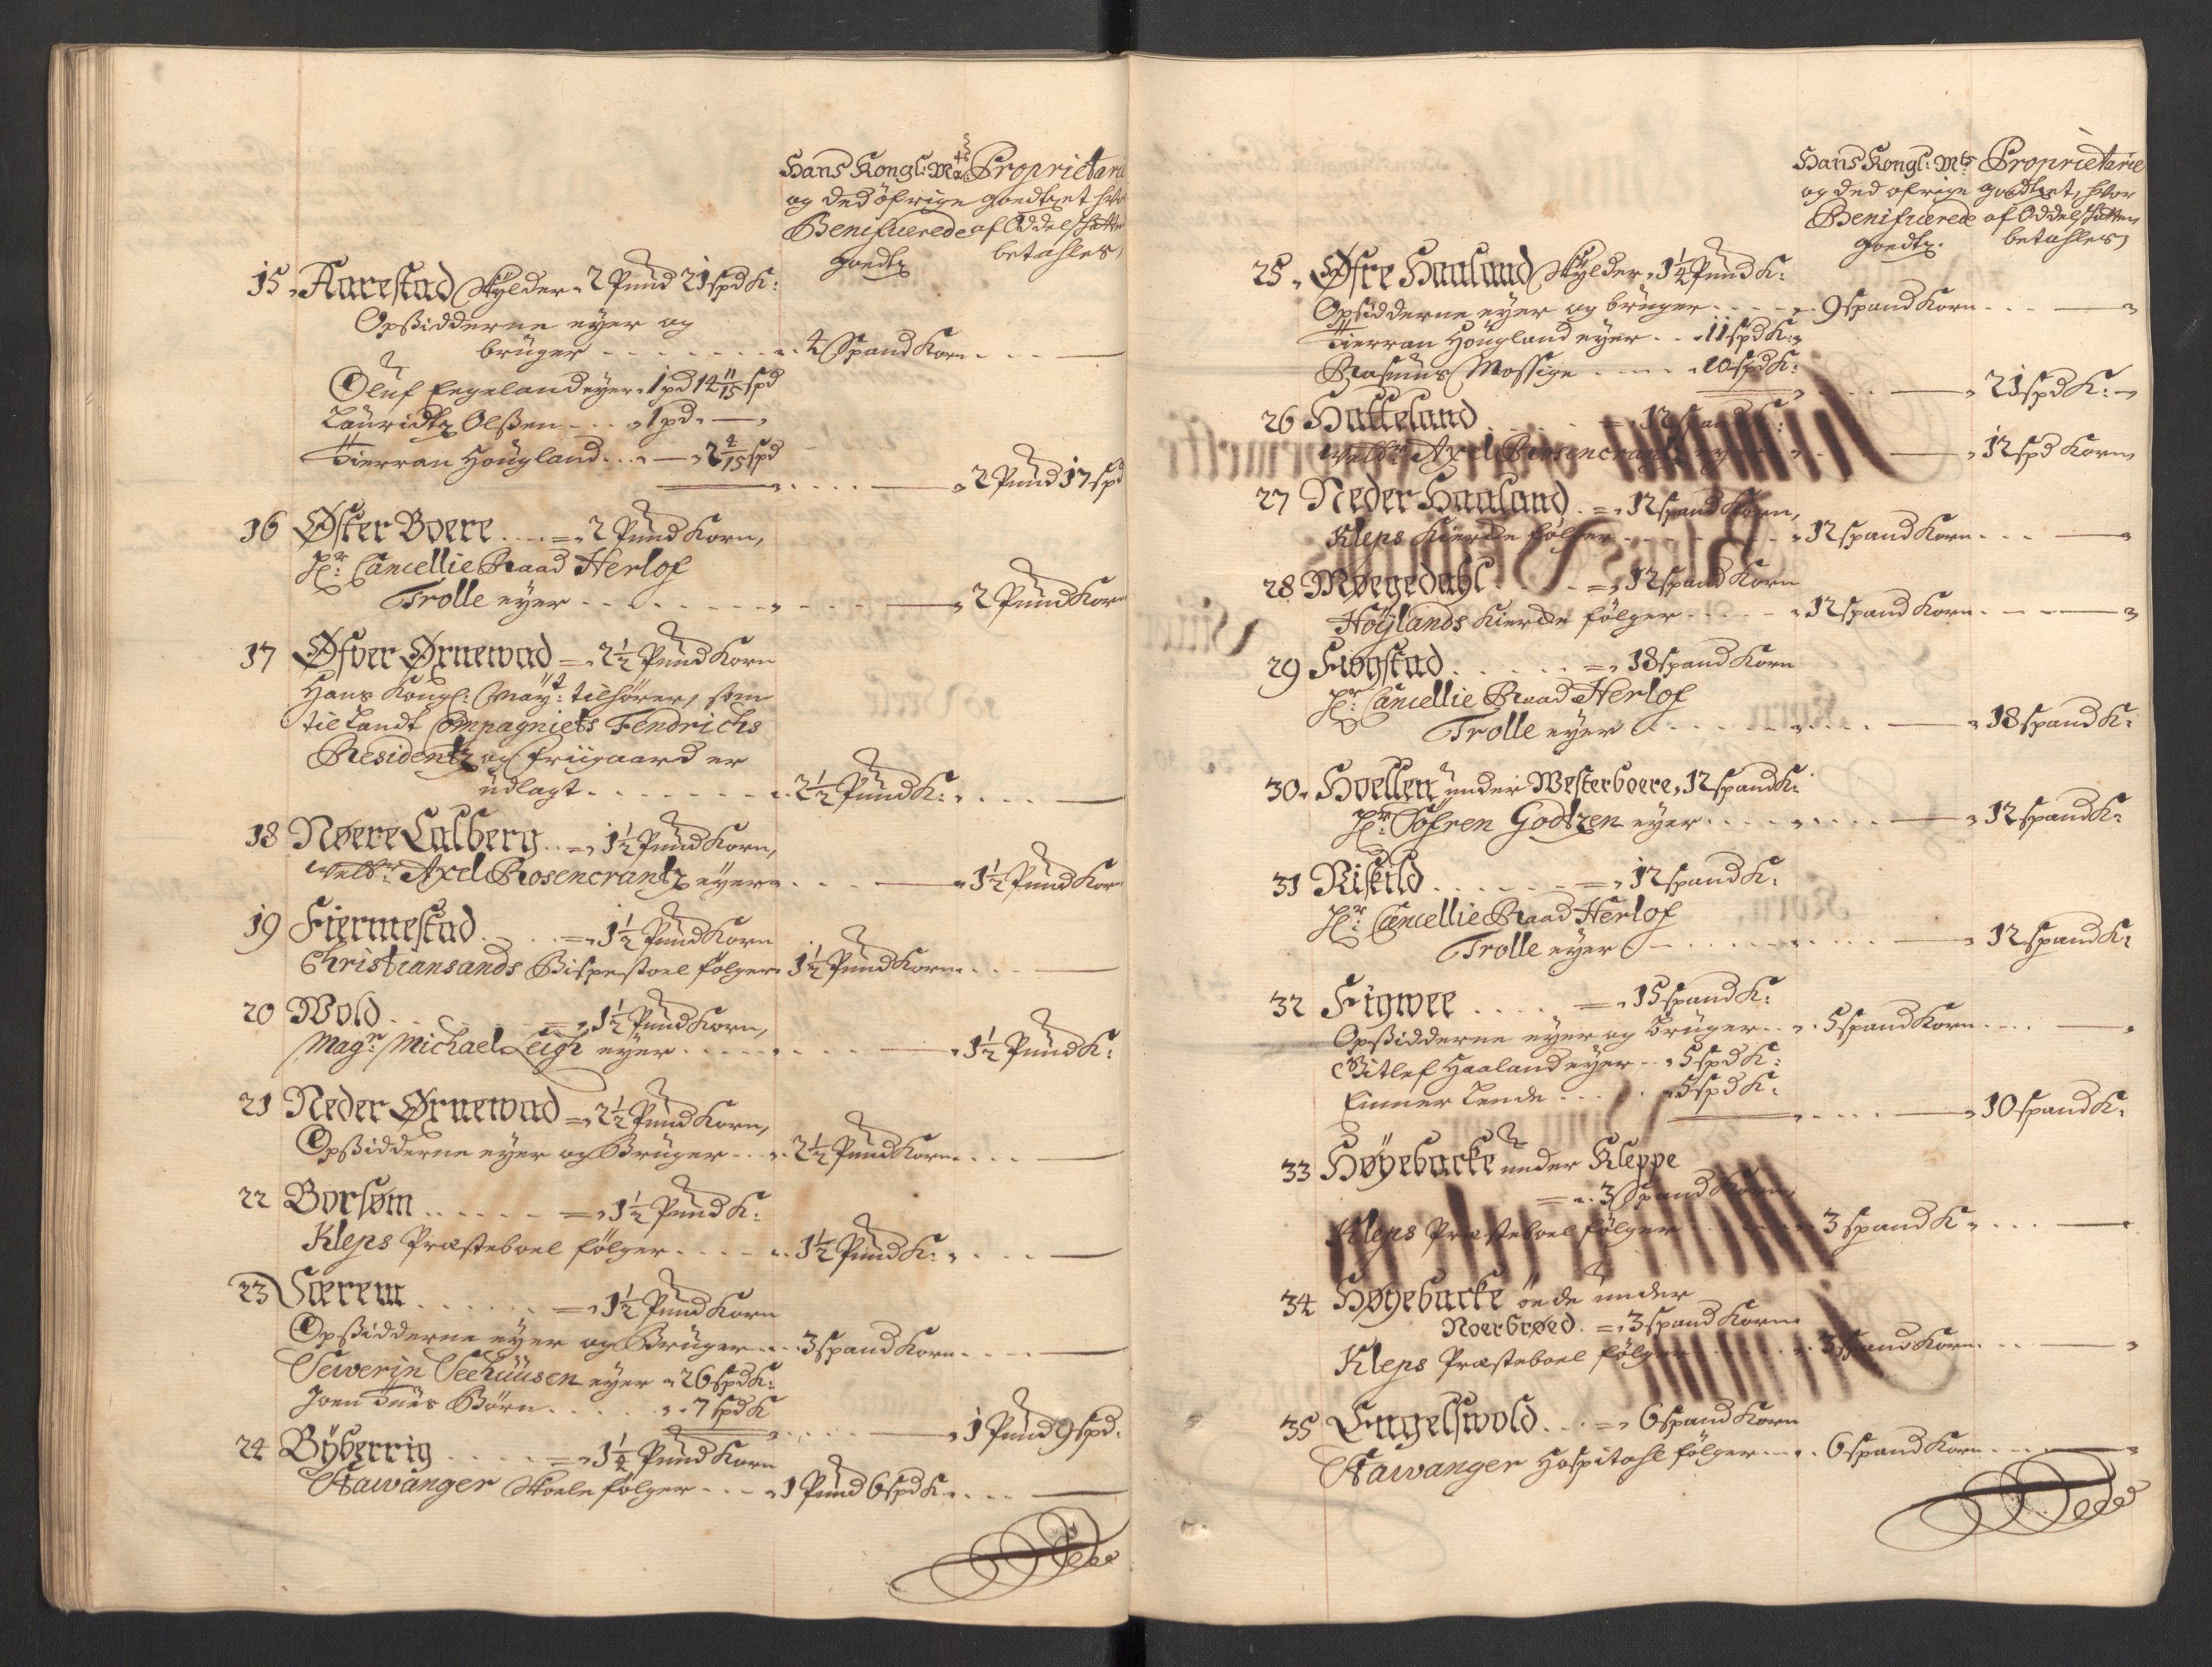 Hans Kongl: Mats Proprietarie
og ded öfrige goedtzet hvor
Benificerede af Oddelskatten
goedtz betahles,
15, Aarestad Skylder 2 Pund 21 spd K:
Opsidderne eyer og
brüger 4 Spand Korn
Oluf Engeland eyer 1 pd 14 11/15 spd
Lauridtz Olsen 1 pd
Tierran Høugland 2 4/15 spd
2 Pund 17 spd
16 Øster Boere 2 Pund Korn,
Hr: Cancellie Raad Herlof
Trolle eyer 2 Pund Korn
17 Øfver Ørnewad 2½ Pund Korn
Hans Kongl: Mayt: tilhører, som
til Landt Compagniets Fendrichs
Residentz og friigaard er
udlagt 2½ Pund K:
18 Nøere Lalberg 1½ Pund Korn,
Welbr: Axel Rosencrantz eyer 1½ Pund Korn
19 Fiermestad 1½ Pund Korn
Christiansands Bispestoel følger 1½ Pund Korn
20 Wold 1½ Pund Korn,
Magr: Michael Leigh eyer 1½ Pund K:
21 Neder Ørnewad 2½ Pund Korn,
Opsidderne eyer og Brüger 2½ Pund Korn
22 Borsøm 1½ Pund K:
Kleps Præsteboel følger 1½ Pund K:
23 Særem 1½ Pund Korn
Opsidderne eyer og Brüger 3 spand Korn
Sewerin Seehuusen eyer 26 spd K:
Joen Tuës Børn 7 spd K
1 Pund 9 spd.
24 Byberrig 1¼ Pund Korn
Stawanger Skoele følger 1 Pund 6 spd K
Hans Kongl: Mts Proprietarie
og ded ofrige goedtzet, hvor
Benificerede af Oddelskatten
goedtz. betahles,
25, Øfre Haaland Skylder 1¼ Pund K:
Opsidderne eyer og brüger 9 spand Korn
Tierran Høugland eyer 11 spd K:
Rasmus Mossige 10 spd K:
21 spd K:
26 Hatteland 12 spand K:
Welbr: Axel Rosencrantz eyer 12 spd Korn
27 Neder Haaland 12 spand Korn,
Kleps Kierche følger 12 spand Korn
28 Møegedahl 12 spand Korn
Høylands Kierche følger 12 spand Korn
29 Fiogstad 18 spand Korn
Hr: Cancellie Raad Herlof
Trolle eyer 18 spand K:
30, Hoellen under Westerboere, 12 spand K:
Hr: Søfren Godtzen eyer 12 spand K:
31 Riskild 12 spand K:
Hr: Cancellie Raad Herlof
Trolle eyer 12 spand K:
32 Figwee 15 spand K:
Opsidderne eyer og Brüger 5 spand Korn
Ditlef Haaland eyer 5 spd K:
Einner Lende 5 spd K:
10 spand K:
33 Høyebacke under Kleppe
3 Spand Korn,
Kleps Præsteboel følger 3 spand K
34 Høyebacke øede under
Noerbrøed 3 spand Korn
Kleps Præsteboel følger 3 spand Korn
35 Engelswold 6 spand Korn
Stawanger Hospitahl følger 6 spand Korn